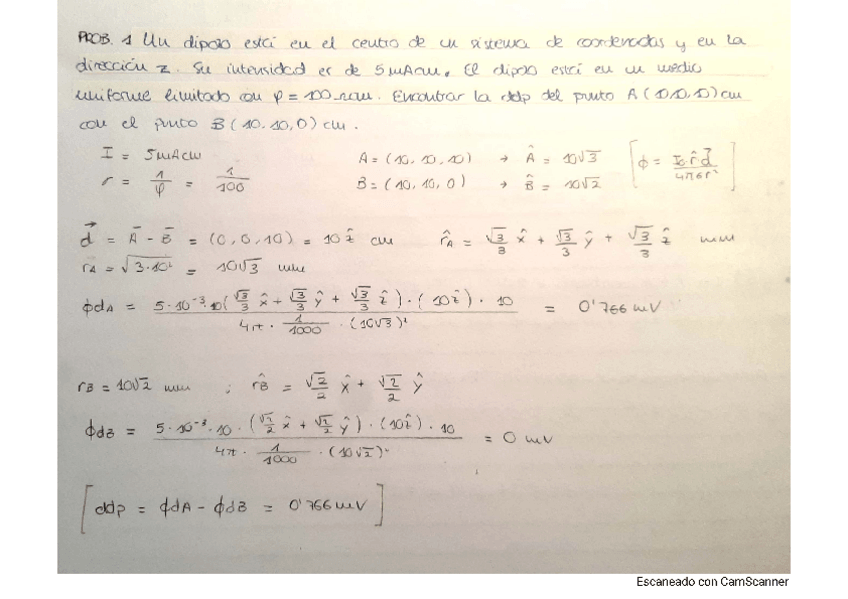 PROB. 1 Un dipolo está en el centro de un sistema de coordenadas y en la
dirección z. Su intensidad es de 5mAcm. El dipolo está en un medio
uniforme limitado con φ = 100 Ωcm. Encontrar la ddp del punto A (10,10,10) cm
con el punto B (10,10,0) cm.
I = 5mAcm A = (10, 10, 10) → Â = 10√3 [ϕ = I0 r̂ d⃗ / 4πσr²]
r = 1/φ = 1/100 B = (10, 10, 0) → B̂ = 10√2
d⃗ = A̅ - B̅ = (0, 0, 10) = 10 ẑ cm r̂A = √3/3 x̂ + √3/3 ŷ + √3/3 ẑ mm
rA = √3·10² = 10√3 mm
ϕdA = 5·10⁻³·10(√3/3 x̂ + √3/3 ŷ + √3/3 ẑ)·(10ẑ)·10 / 4π · 1/1000 · (10√3)² = 0'766 mV
rB = 10√2 mm ; r̂B = √2/2 x̂ + √2/2 ŷ
ϕdB = 5·10⁻³·10·(√2/2 x̂ + √2/2 ŷ)·(10ẑ)·10 / 4π · 1/1000 · (10√2)² = 0 mV
[ddp = ϕdA - ϕdB = 0'766 mV]
Escaneado con CamScanner